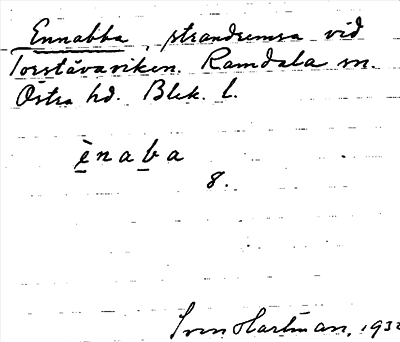 Ennabba, strandremsa vid
Torstävaviken. Ramdala sn.
Östra hd. Blek. l.
ènaba
8.
Sven Hartman, 193